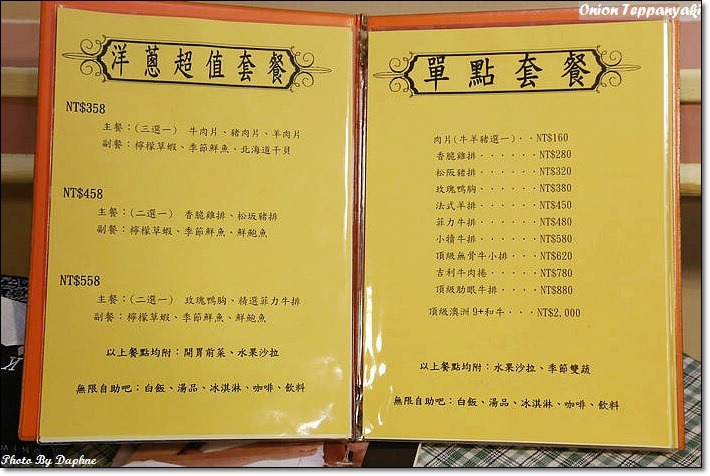 Onion Teppanyaki
洋蔥超值套餐
NT$358
主餐：(三選一) 牛肉片、豬肉片、羊肉片
副餐：檸檬草蝦、季節鮮魚、北海道干貝
NT$458
主餐：(二選一) 香脆雞排、松坂豬排
副餐：檸檬草蝦、季節鮮魚、鮮鮑魚
NT$558
主餐：(二選一) 玫瑰鴨胸、精選菲力牛排
副餐：檸檬草蝦、季節鮮魚、鮮鮑魚
以上餐點均附：開胃前菜、水果沙拉
無限自助吧：白飯、湯品、冰淇淋、咖啡、飲料
單點套餐
肉片(牛羊豬選一)‧‧NT$160
香脆雞排‧‧‧‧‧‧NT$280
松阪豬排‧‧‧‧‧‧NT$320
玫瑰鴨胸‧‧‧‧‧‧NT$380
法式羊排‧‧‧‧‧‧NT$450
菲力牛排‧‧‧‧‧‧NT$480
小犢牛排‧‧‧‧‧‧NT$580
頂級無骨牛小排‧‧‧NT$620
吉利牛肉捲‧‧‧‧‧NT$780
頂級肋眼牛排‧‧‧‧NT$880
頂級澳洲9+和牛‧‧‧NT$2,000
以上餐點均附：水果沙拉、季節雙蔬
無限自助吧：白飯、湯品、冰淇淋、咖啡、飲料
Photo By Daphne